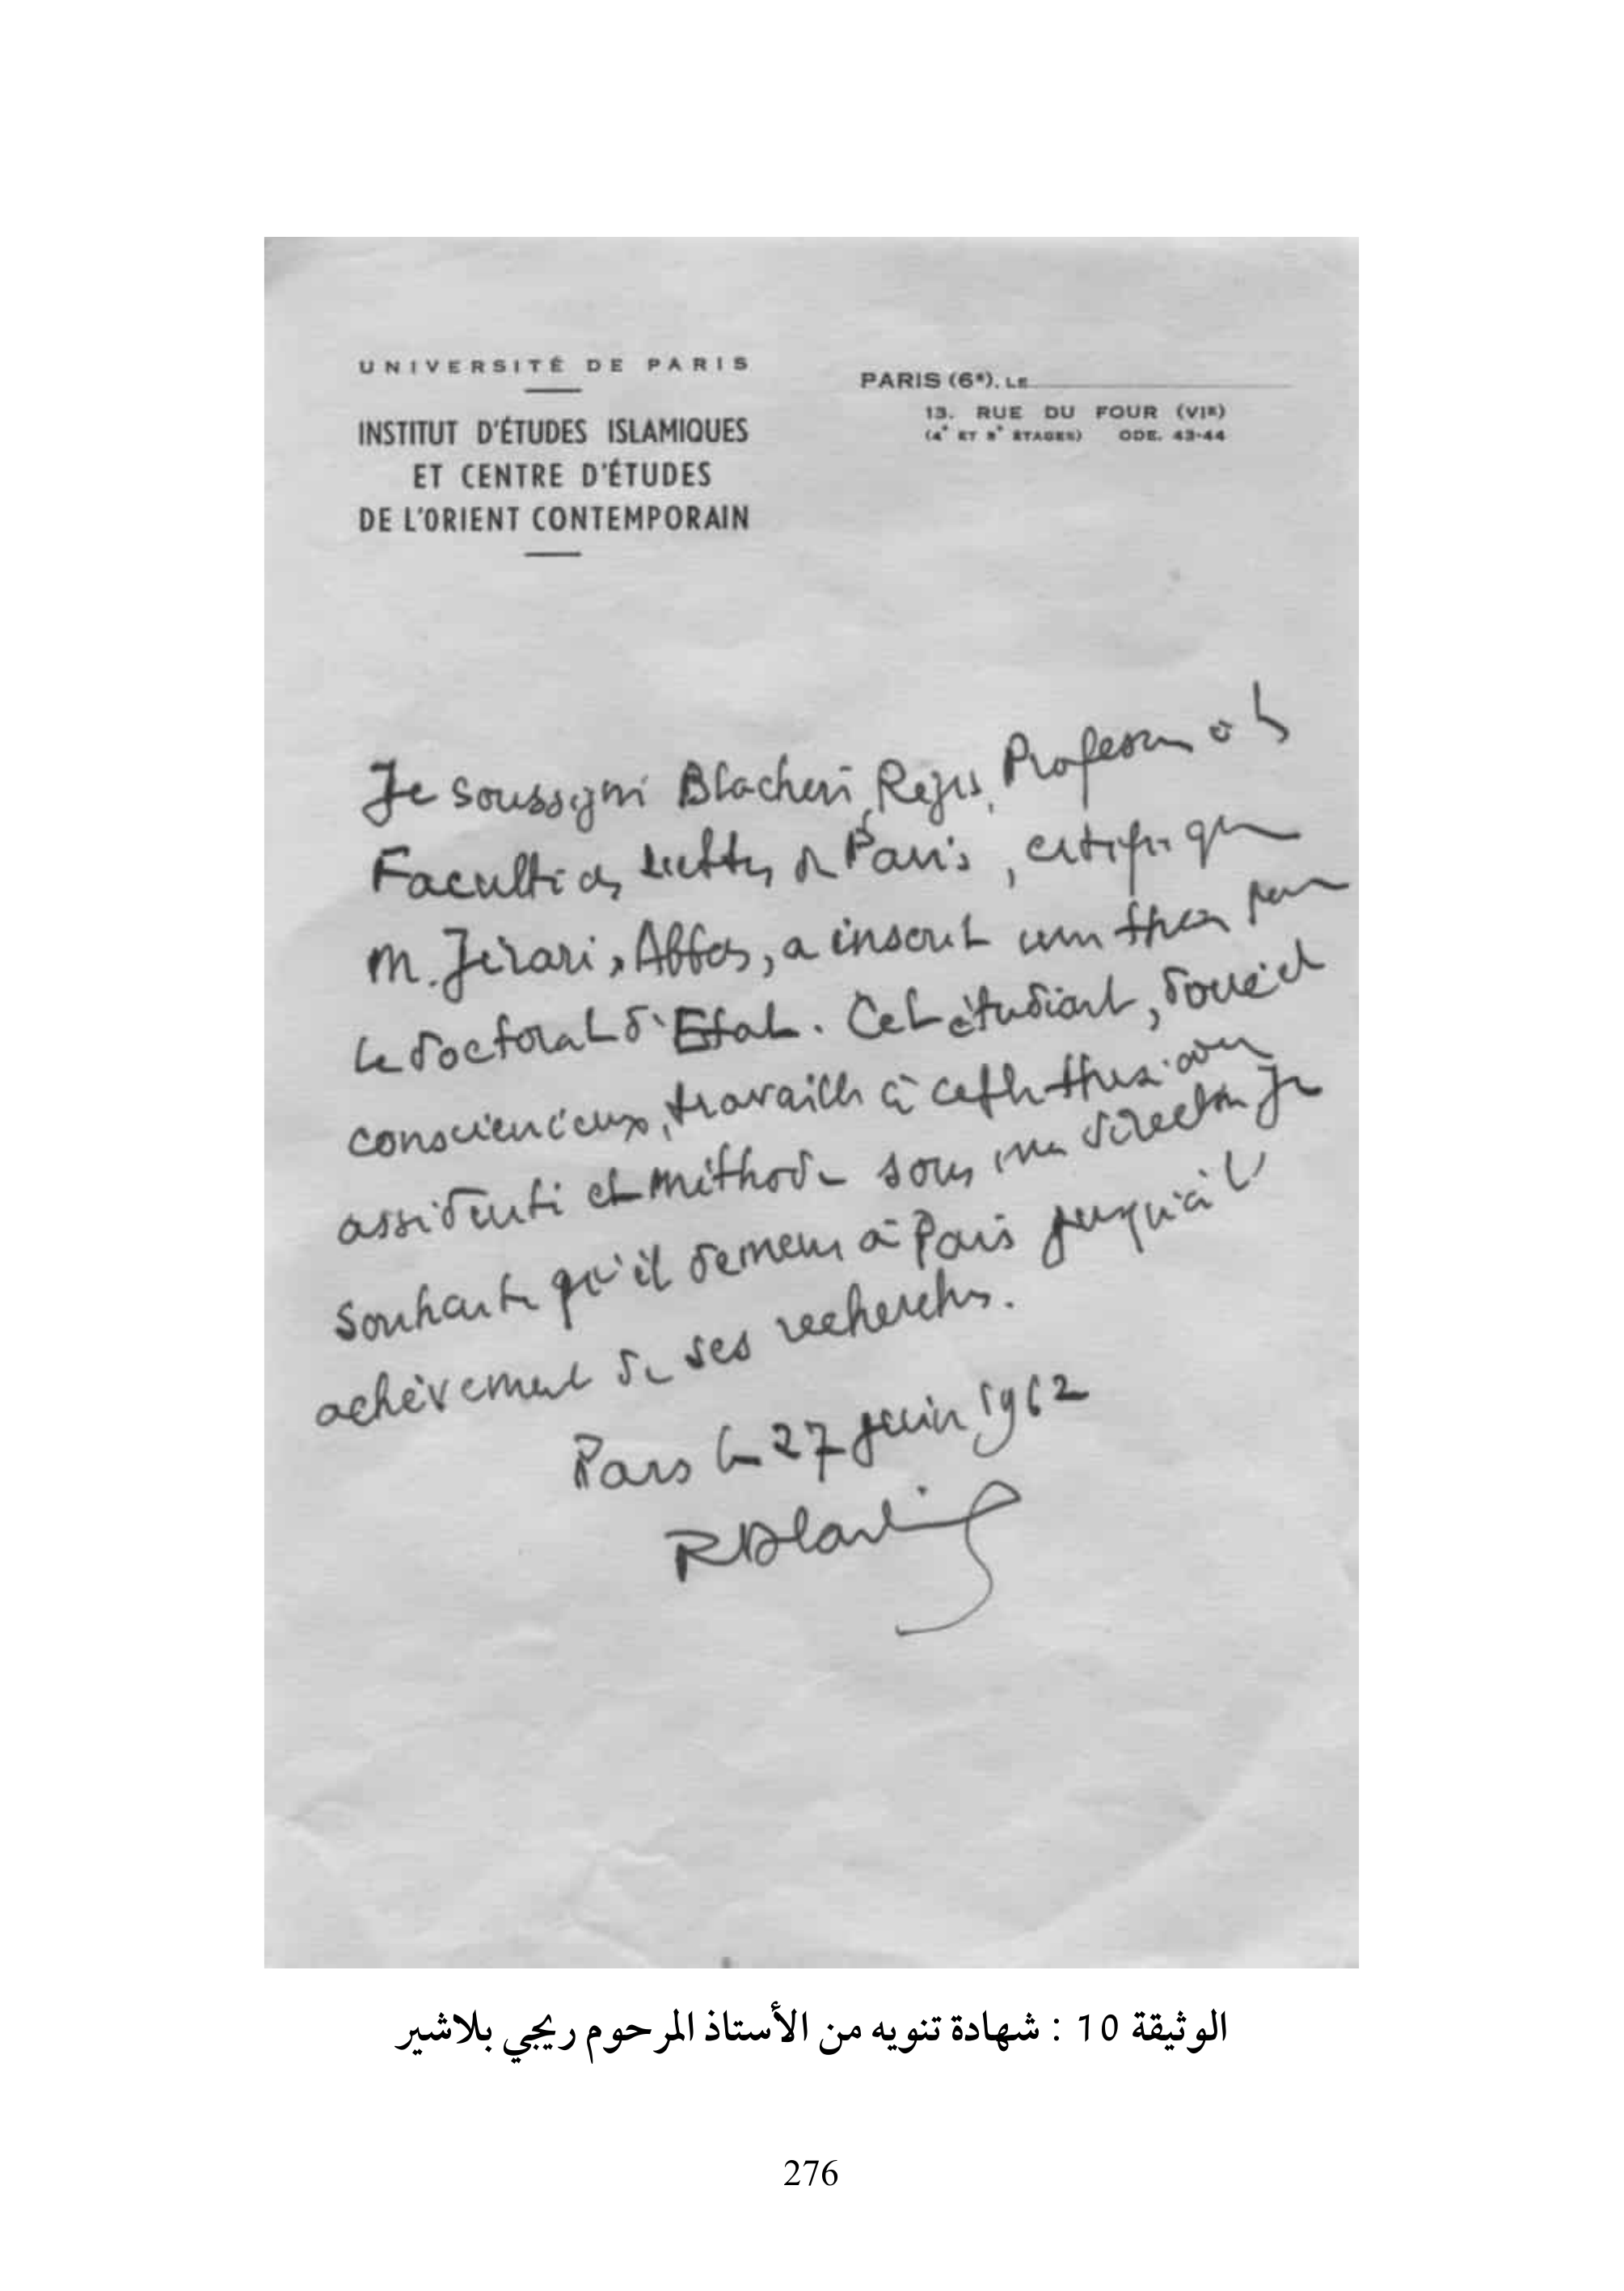 UNIVERSITÉ DE PARIS
INSTITUT D'ÉTUDES ISLAMIQUES
ET CENTRE D'ÉTUDES
DE L'ORIENT CONTEMPORAIN
PARIS (6e), LE
13, RUE DU FOUR (VIe)
(4e ET 5e ÉTAGES) ODE. 43-44
Je soussigné Blachère, Régis, Professeur à la
Faculté des Lettres de Paris, certifie que
M. Jirari, Abbas, a inscrit une thèse pour
le doctorat d'Etat. Cet étudiant, doué et
consciencieux, travaille à cette thèse avec
assiduité et méthode sous ma direction Je
souhaite qu'il demeure à Paris jusqu'à l'
achèvement de ses recherches.
Paris le 27 juin 1962
R Blachère
الوثيقة 10 : شهادة تنويه من الأستاذ المرحوم ريجي بلاشير
276